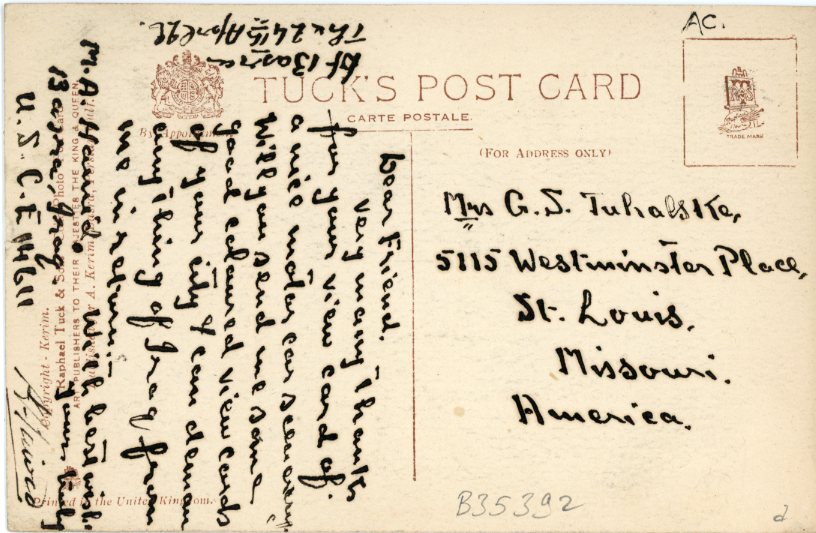 AC.
TUCK'S POST CARD
CARTE POSTALE.
(FOR ADDRESS ONLY)
TRADE MARK
Mrs G. S. Tuhalske,
5115 Westminster Place,
St. Louis,
Missouri.
America.
B35392
At Basra
The 24th April
Dear Friend.
very many thanks
for your view card of.
a nice motor car scenery.
Will you send me some
good coloured view cards
of your city & can deman
anything of Iraq from
me in return.
With best wish
yours truly
M. A. Hamid
Basra, Iraq.
U. S. C. E 11611
By Appointment
Copyright - Kerim.
Raphael Tuck & Sons
ART PUBLISHERS TO THEIR MAJESTIES THE KING & QUEEN.
A. Kerim,
Printed in the United Kingdom.